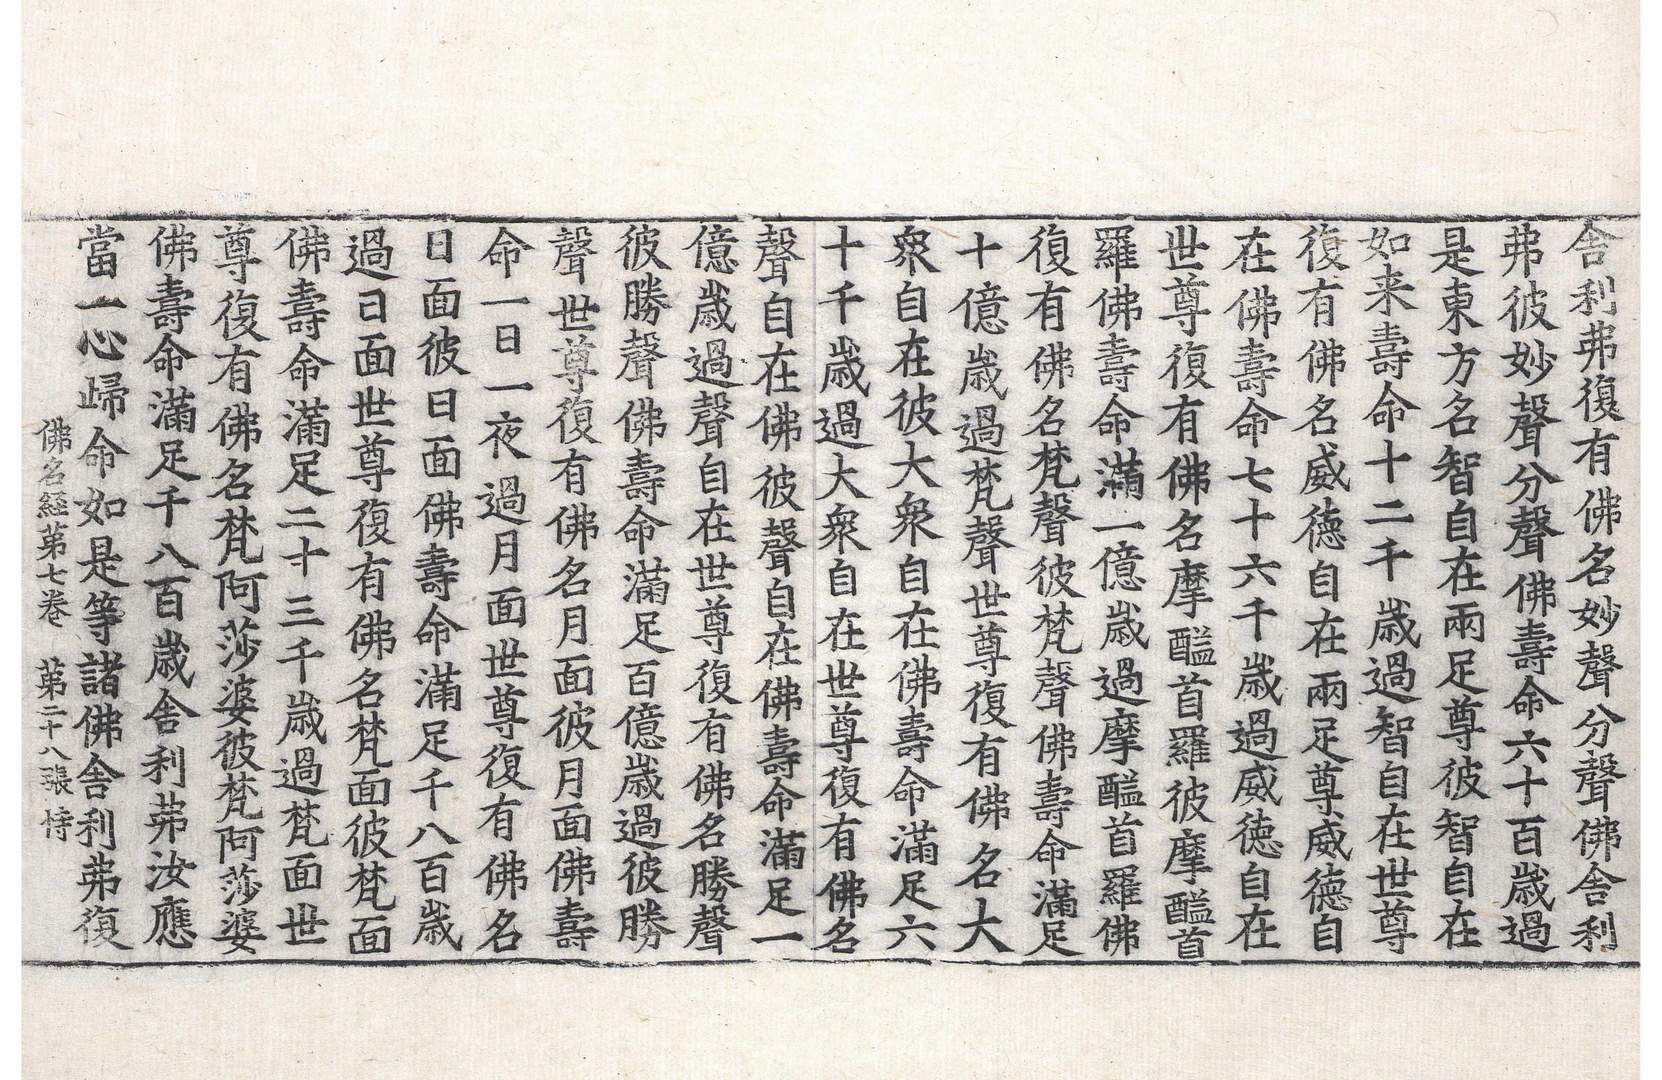 舍利弗復有佛名妙聲分聲佛舍利
弗彼妙聲分聲佛壽命六十百歲過
是東方名智自在兩足尊彼智自在
如来壽命十二千歲過智自在世尊
復有佛名威德自在兩足尊威德自
在佛壽命七十六千歲過威德自在
世尊復有佛名摩醯首羅彼摩醯首
羅佛壽命滿一億歲過摩醯首羅佛
復有佛名梵聲彼梵聲佛壽命滿足
十億歲過梵聲世尊復有佛名大
衆自在彼大衆自在佛壽命滿足六
十千歲過大衆自在世尊復有佛名
聲自在佛彼聲自在佛壽命滿足一
億歲過聲自在世尊復有佛名勝聲
彼勝聲佛壽命滿足百億歲過彼勝
聲世尊復有佛名月面彼月面佛壽
命一日一夜過月面世尊復有佛名
日面彼日面佛壽命滿足千八百歲
過日面世尊復有佛名梵面彼梵面
佛壽命滿足二十三千歲過梵面世
尊復有佛名梵阿莎婆彼梵阿莎婆
佛壽命滿足千八百歲舍利弗汝應
當一心歸命如是等諸佛舍利弗復
佛名經第七卷 第二十八張 恃